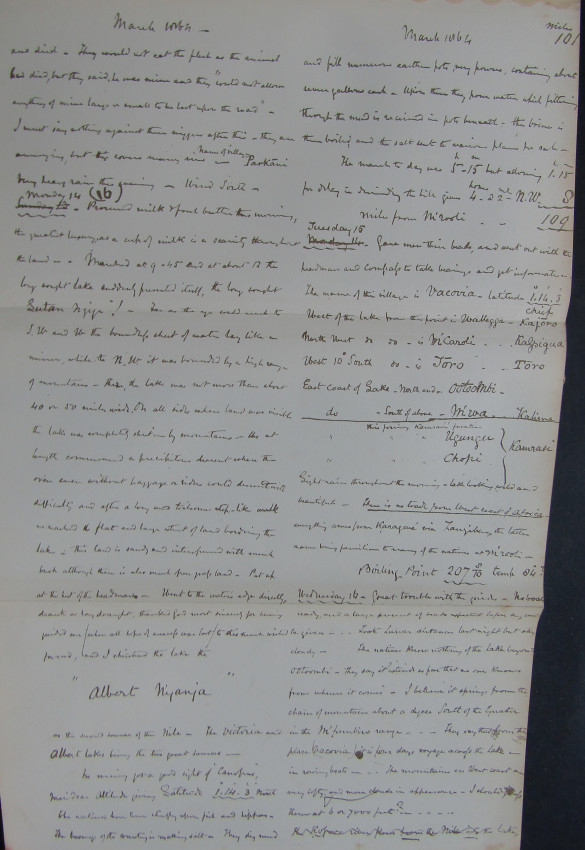 March 1864 -
and died - They would not eat the flesh as the animal
had died, but they said, he was mine and they "could not allow
anything of mine large or small to be lost upon the road" -
I must say nothing against these niggers after this - they are
annoying, but this covers many sins - Name of village Parkāni
Very heavy rain this evening - Wind South -
Monday 14 (16)
Sunday 13 - Procured milk & fresh butter this morning,
the greatest luxury, as a cup of milk is a scarcity throughout
the land - Marched at 9-45 and at about 12 the
long sought lake suddenly presented itself, the long sought
"Lutan Nzige"! - Far as the eye could reach to
S.W and W the boundless sheet of water lay like a
mirror, while to the N.W it was bounded by a high range
of mountains - the lake was not more than about
40 or 50 miles wide. On all sides where land was visible
the lake was completely shut in by mountains - We at
length commenced a precipitous descent where the
oxen even without baggage or rider could descend with
difficulty and after a long and toilsome step-like walk
we reached the flat and large extent of land bordering the
lake - this land is sandy and interspersed with much
bush although there is also much open grass land - Put up
at the hut of the headman - Went to the waters edge directly,
drank a long draught, thanked God most sincerely for having
guided me (when all hope of success was lost) to this much wished
for end, and I christened the lake the
"Albert Nyanza"
as the second source of the Nile - The Victoria and
Albert lakes being the two great sources -
This evening got a good sight of "Canopus",
Meridian Altitude giving Latitude 1.14.3 North
The natives here live chiefly upon fish and
The women of the country in making salt - They dig mud
March 1864
miles
101
and fill numerous earthen pots, very porous, containing about
seven gallons each - Upon these they pour water which filtering
through the mud is received in pots beneath - The brine is
then boiled and the salt sent to various places for sale -
The march to day was 5h-15m but allowing 1.15
for delay in descending the hill gives 4-22 - N.W. 8
miles from M'rooli - - 109
Tuesday 15
Monday 14 - Gave men their beads, and went out with the
headman and compass to take bearings and get information
The name of this village is Vacovia - latitude 1.14.3
Chief
West of the lake from this point is Walegga - Kajoro
North West do do - is M'Carōli - - Kagsiqua
West 10° South do - is Tōro - - Toro
East coast of Lake - North end - Ootoombi -
do - South of above - N'iwa - Kalima
" " Ugungu
" " Chopi } Kamrasi
Light rain throughout the morning - lake looking wild and
beautiful - There is no trade from West coast of Africa
everything comes from Karagwè via Zanzibar, the latter
name being familiar to many of the natives at M'rooli -
Boiling Point 207 8/10 temp 84°
Wednesday 16 - Great trouble with the guides - No boat
ready, and a large present of beads expected before any can
be given - - Took Lunar distance last night but sky
cloudy - The natives know nothing of the lake beyond
Ootoombi - they say it extends so far that no one knows
from whence it comes - I believe it springs from the
chain of mountains about a degree South of the Equator
in the M'fumbiro range - - They say that from this
place Vacovia it is four days voyage across the lake -
in rowing boats - - The mountains on West coast are
very lofty and more clouds in appearance - I should guess
them at 6 or 7000 feet? - - - -